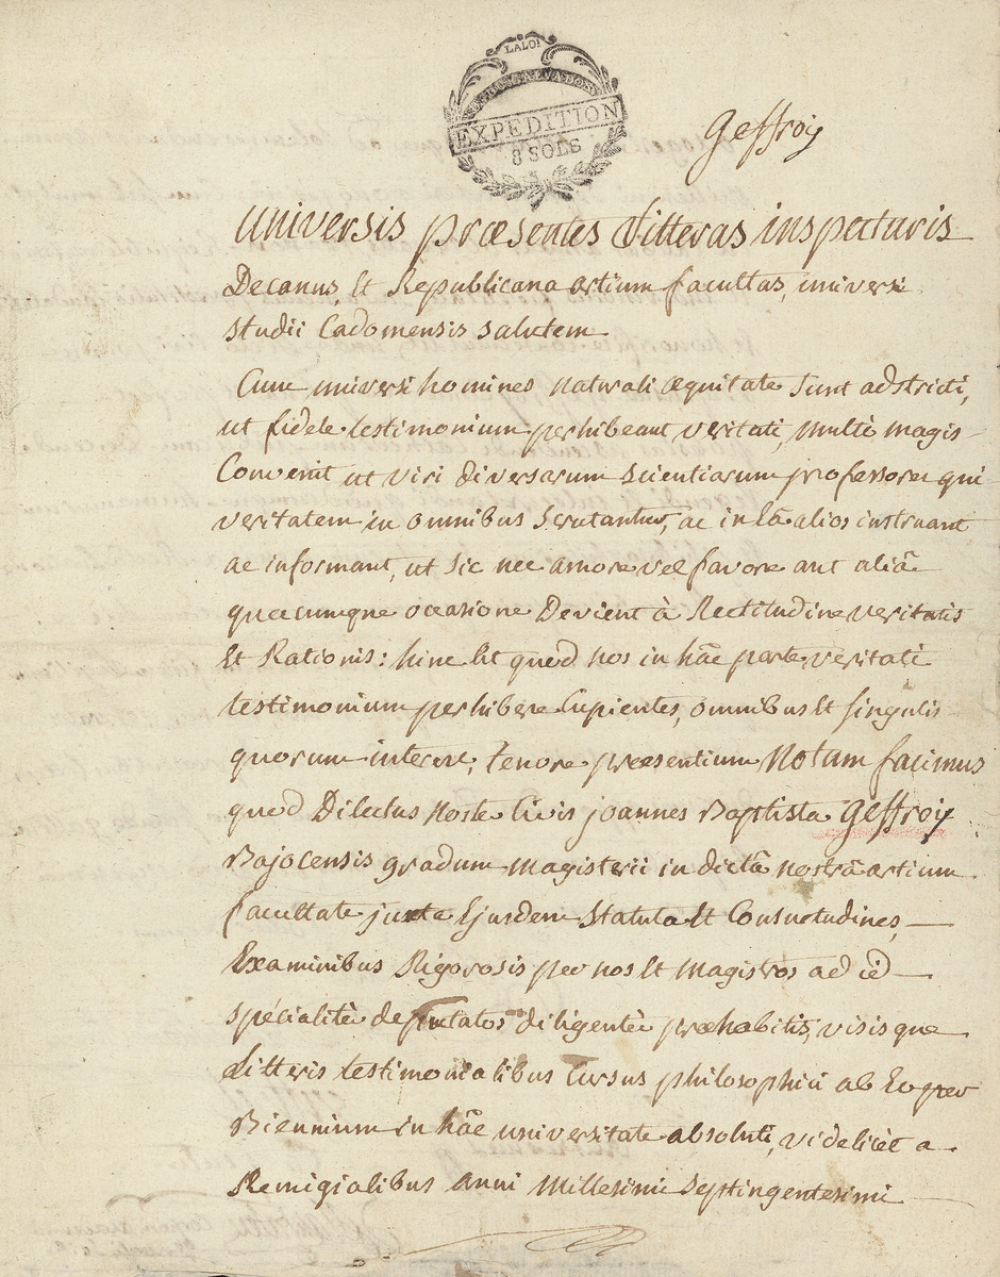 LA LOI
EXPEDITION
8 SOLS
Geffroy
Universis præsentes Litteras inspecturis
Decanus, Et Republicana artium facultas, universi
studii Cadomensis salutem
Cum universi homines naturali æquitate sunt adstricti,
ut fidele testimonium perhibeant veritati, multò magis
Convenit ut viri diversarum scientiarum professores qui
veritatem in omnibus scrutantur, ac in Eâ alios instruant
ac informant, ut sic nec amore vel favore aut aliâ
quacumque occasione Devient à Rectitudine veritatis
Et Rationis: hinc Est quod nos in hâc parte veritati
testimonium perhibere Cupientes, omnibus Et singulis
quorum interest, tenore præsentium Notum facimus
quod Dilectus Noster Civis joannes Baptista Geffroy
Bajocensis gradum magisterii in dictâ nostrâ artium
facultate juxta Ejusdem Statuta Et Consuetudines,
Examinibus Rigorosis per nos Et magistros ad id
spécialitèr deputatos diligentèr præhabitis, visisque
Litteris testimonialibus Cursus philosophici ab Eo per
Biennium in hâc universitate absoluti, videlicèt a
Remigialibus anni Millesimi Septingentesimi